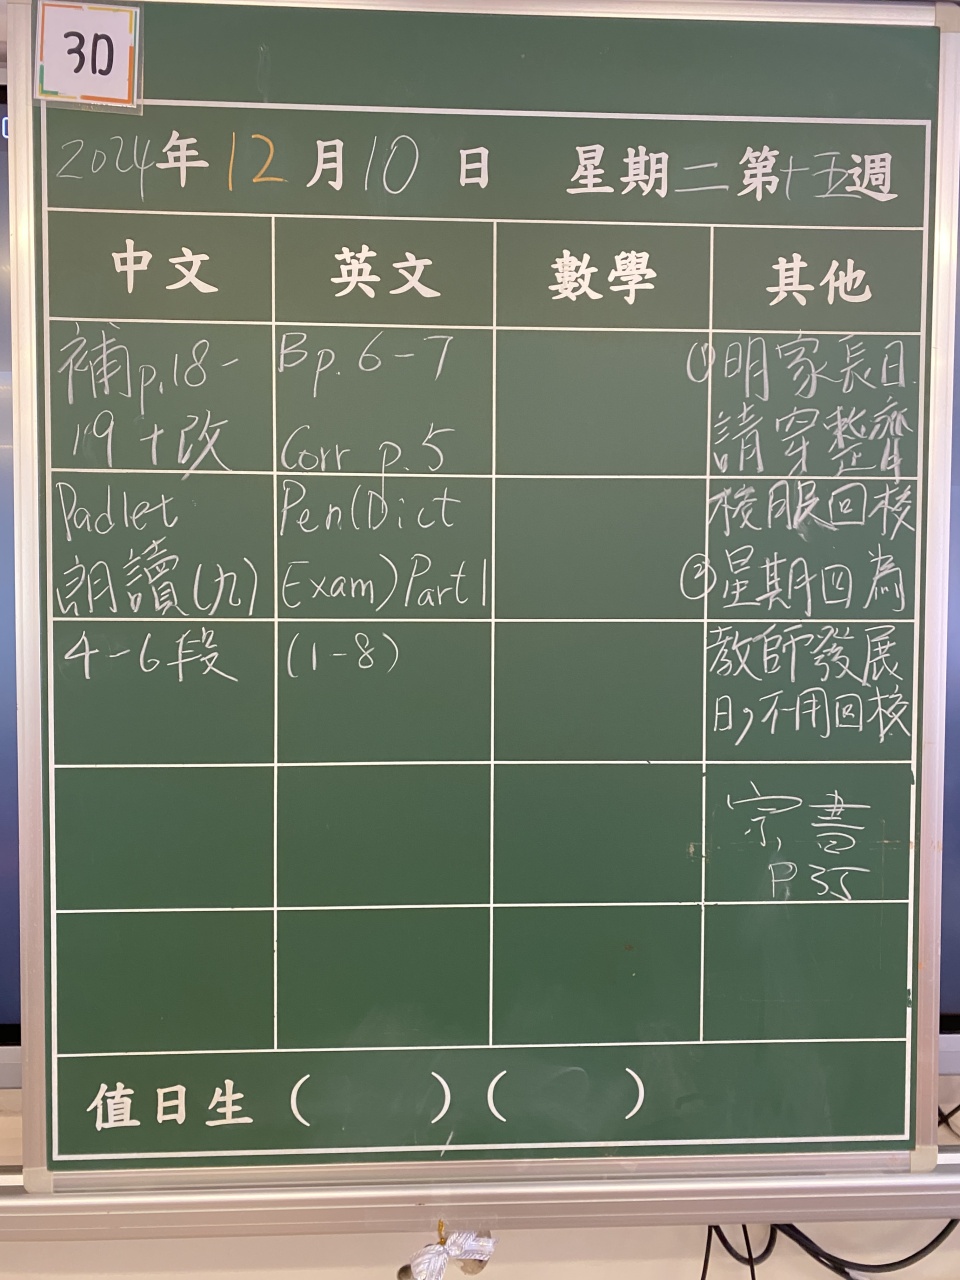 3D
2024年12月10日 星期二第十五週
中文 英文 數學 其他
補p.18-
19+改
Padlet
朗讀(九)
4-6段
Bp.6-7
Corr p.5
Pen(Dict
Exam)Part 1
(1-8)
①明家長日
請穿整齊
校服回校
②星期四為
教師發展
日,不用回校
宗書
P35
值日生( )( )